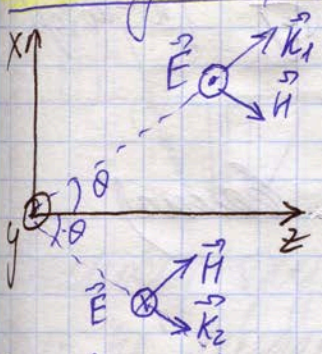 x
E⃗ K⃗₁
H⃗
θ
y -θ z
H⃗
E⃗ K⃗₂